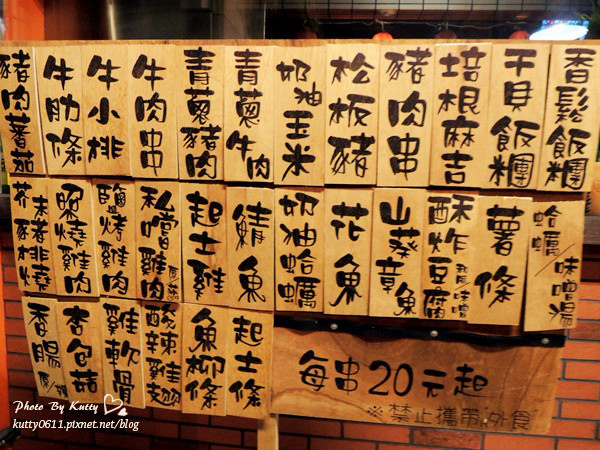 香鬆飯糰
干貝飯糰
培根麻吉
豬肉串
松板豬
奶油玉米
青蔥牛肉
青蔥豬肉
牛肉串
牛小排
牛肋條
豬肉蕃茄
蛤蠣/味噌湯
薯條
酥炸豆腐
山葵章魚
花魚
奶油蛤蠣
鯖魚
起士雞
私嚐雞肉
鹽烤雞肉
照燒雞肉
芥末豬排燒
起士條
魚柳條
酸辣雞翅
雞軟骨
杏包菇
香腸
每串20元起
※禁止攜帶外食
Photo By Kutty
kutty0611.pixnet.net/blog